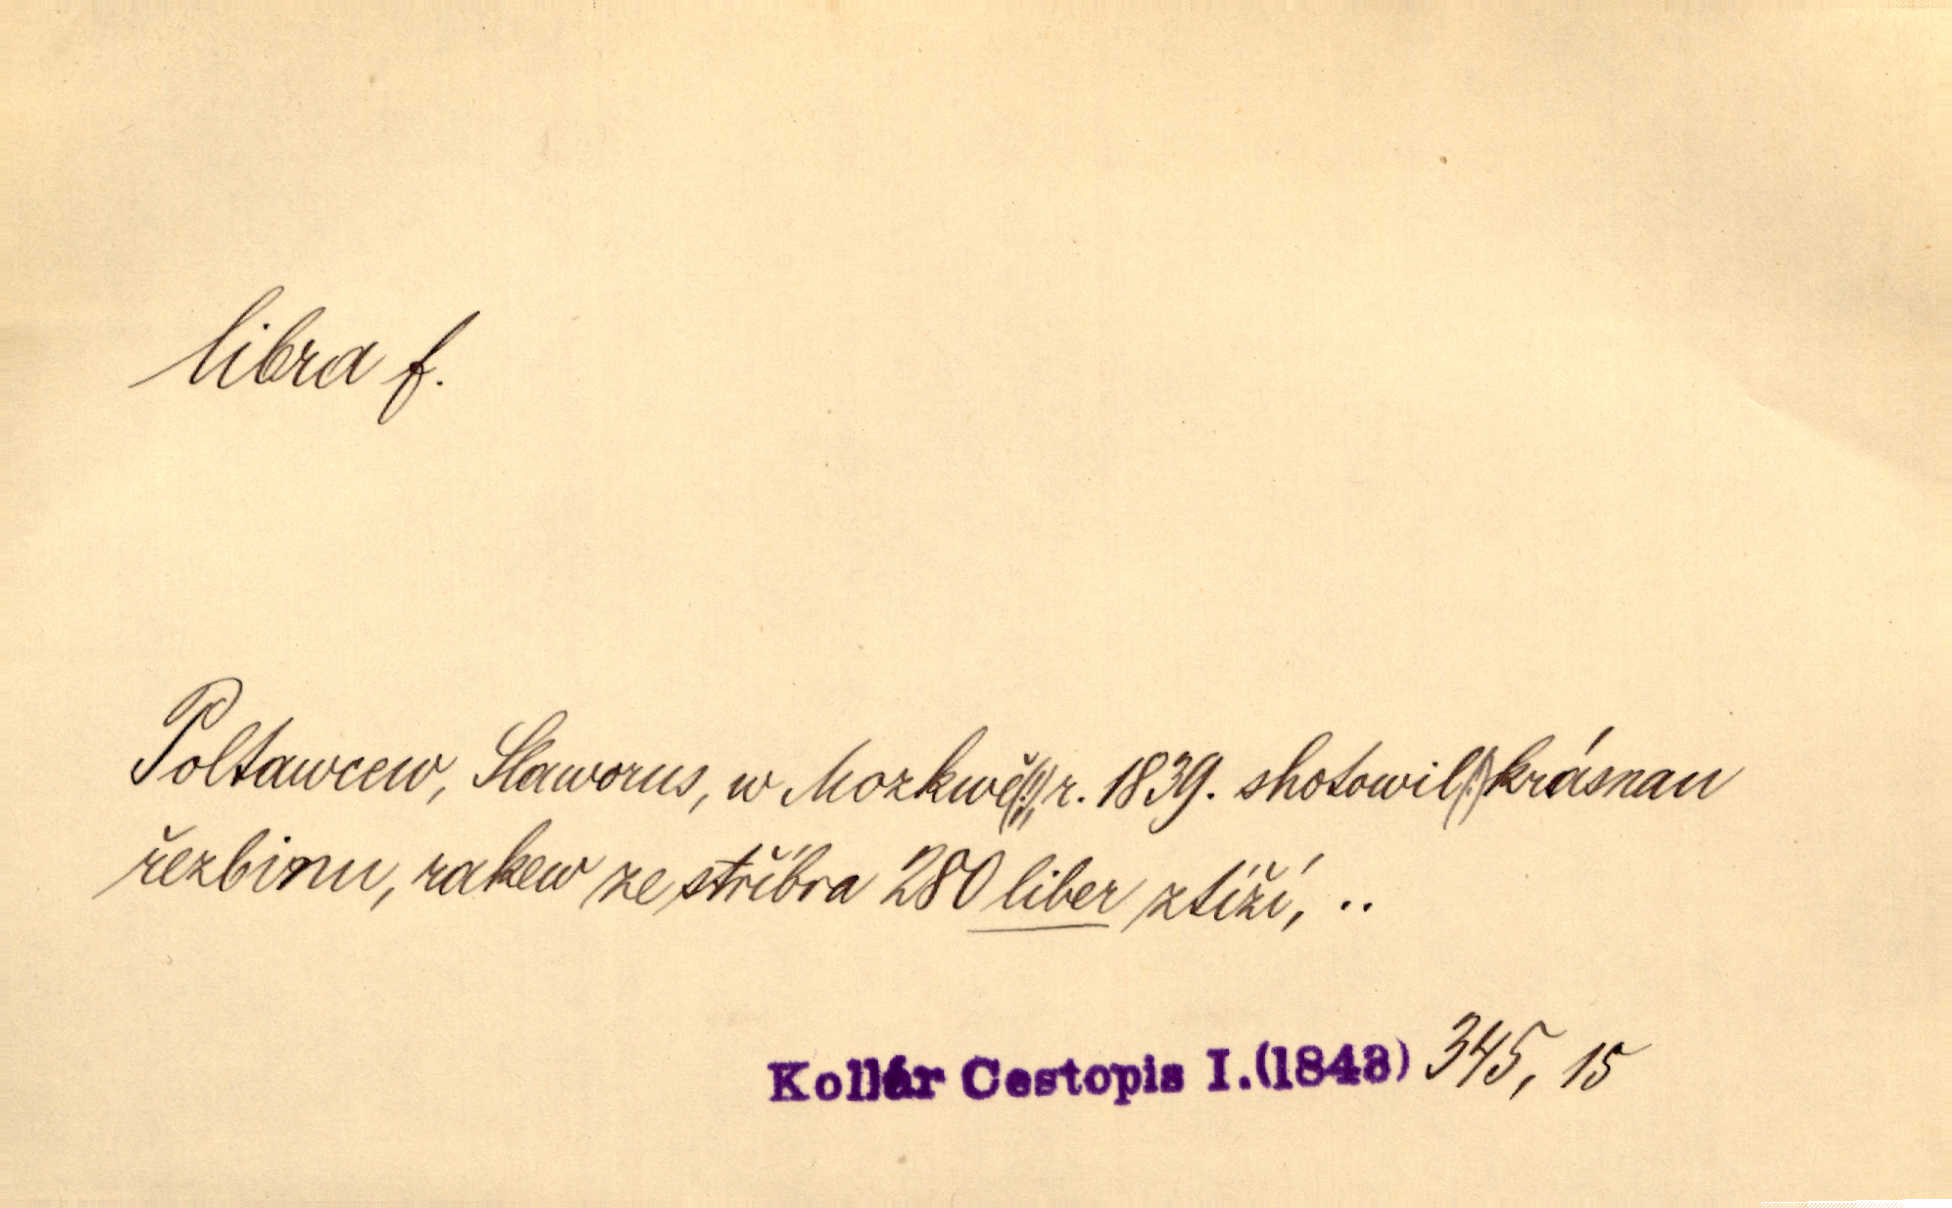 libra f.
Poltawcew, Slaworus, w Mozkwě(!) r. 1839. shotowil(!) krásnau
řezbinu, rakew ze stříbra 280 liber ztíží, ..
Kollár Cestopis I.(1843) 345, 15